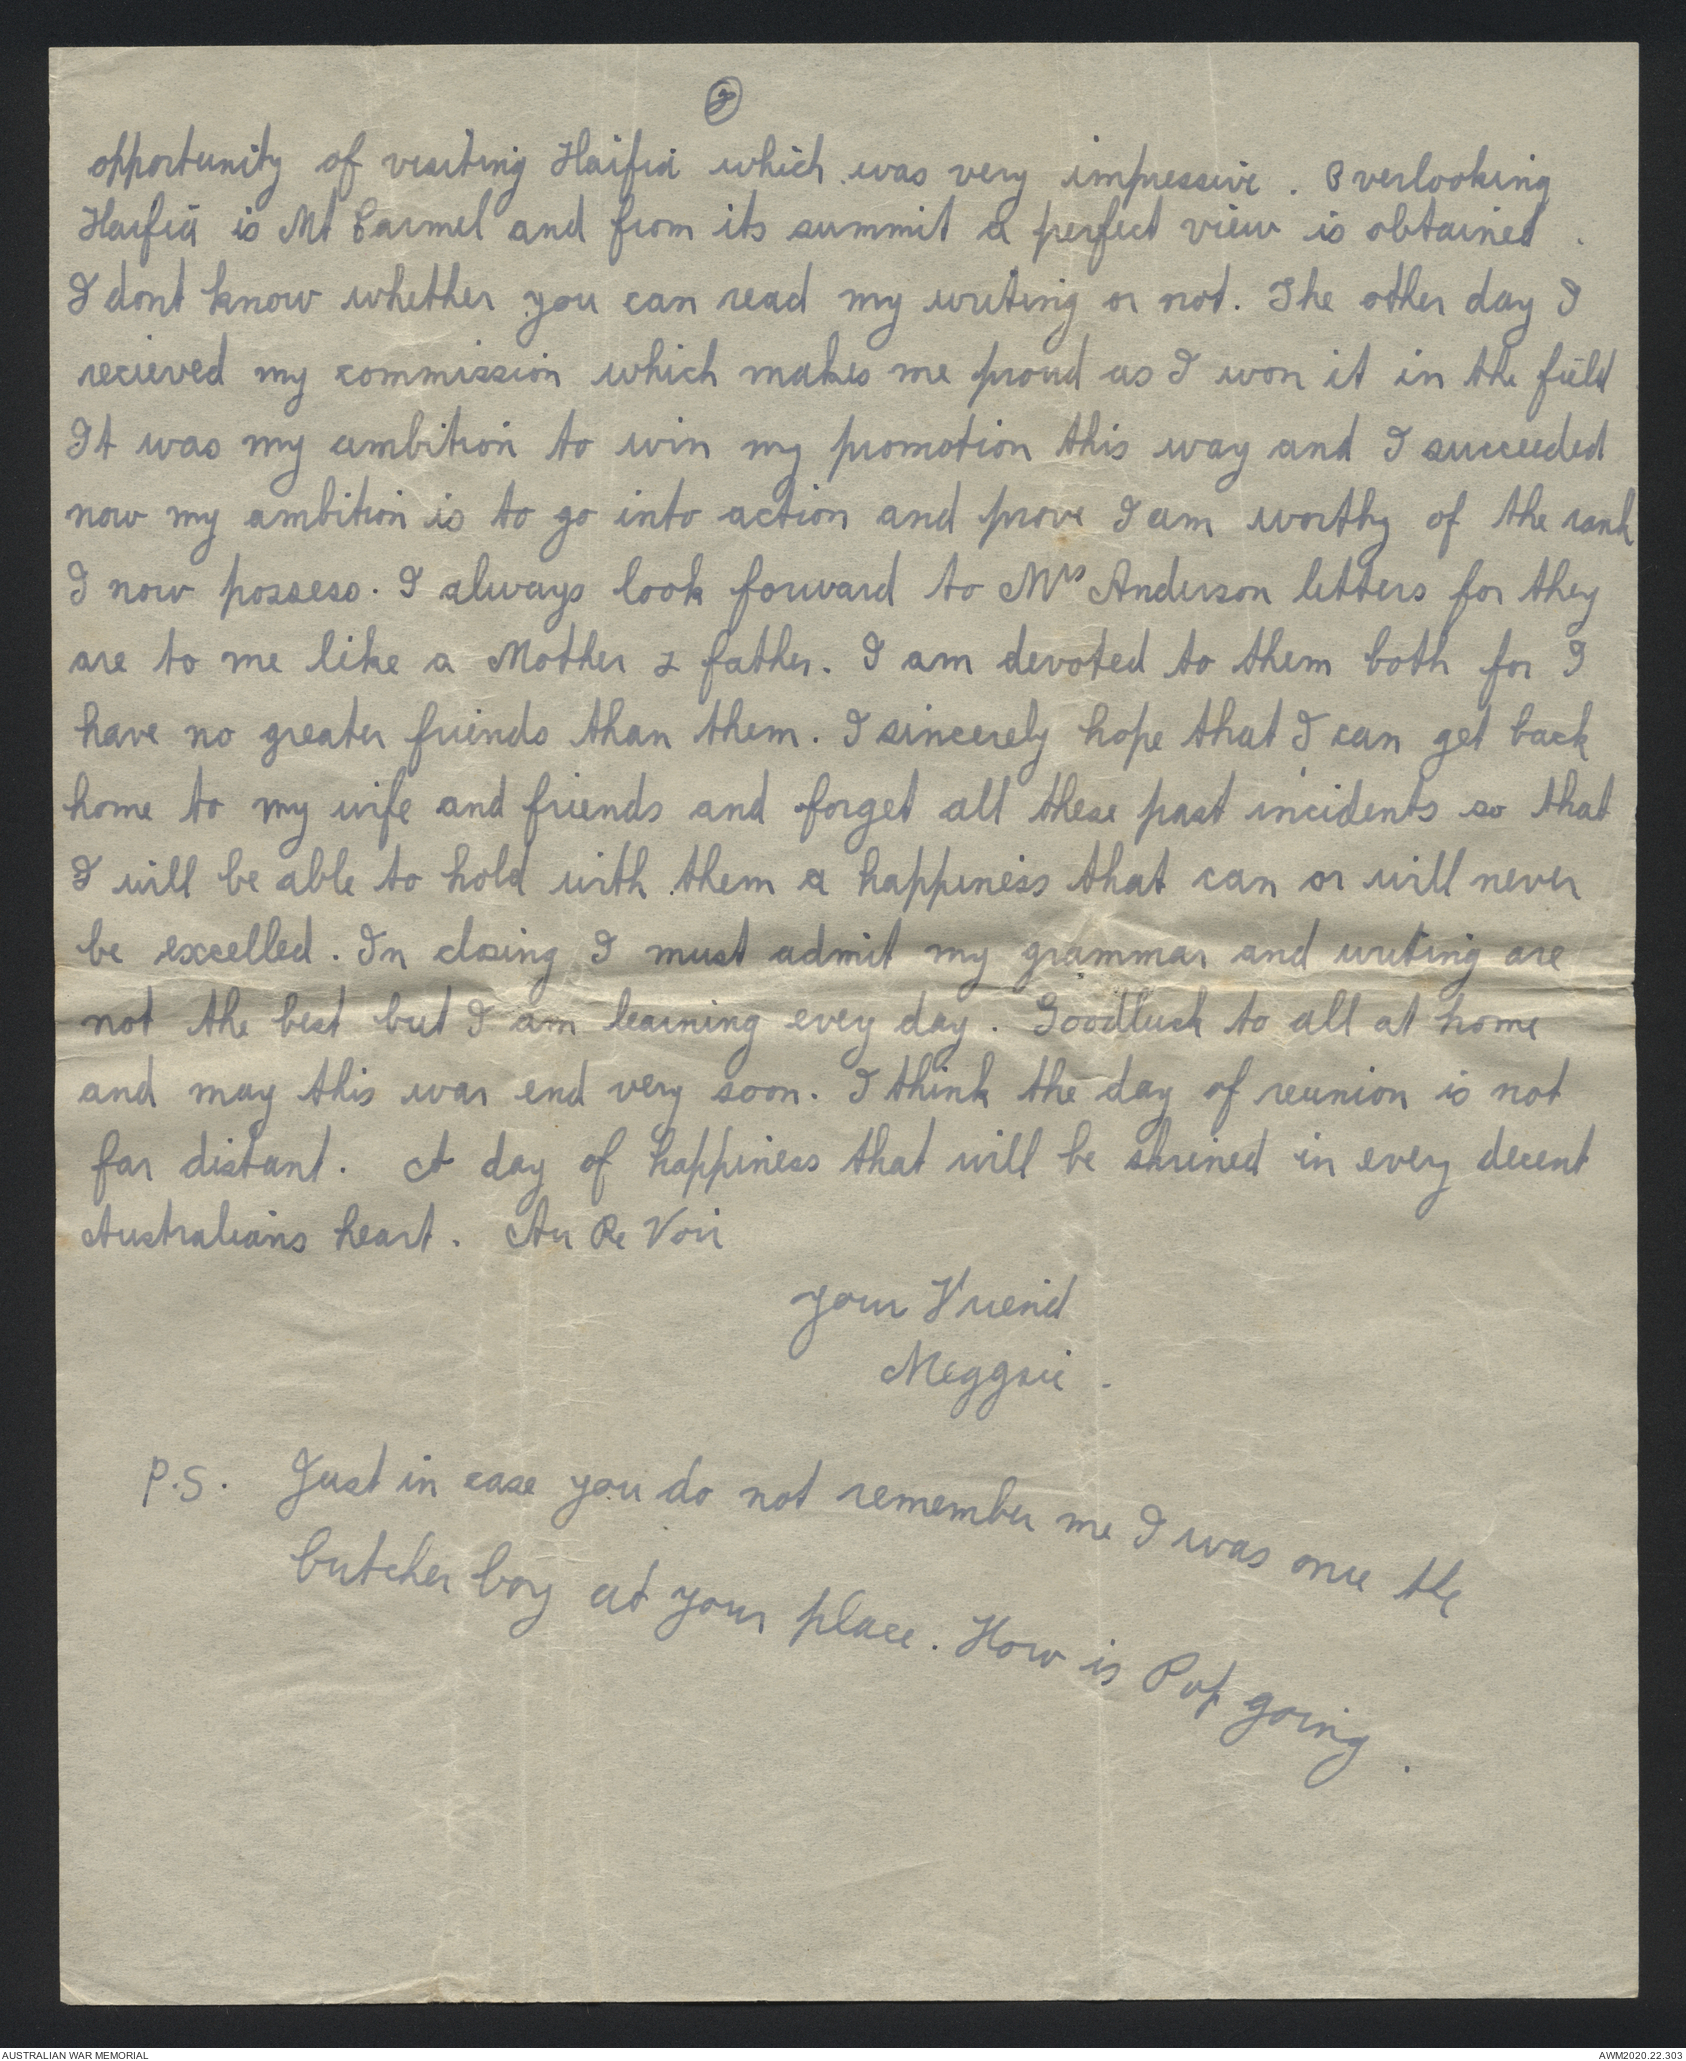 opportunity of visiting Haifa which was very impressive. Overlooking
Haifa is Mt Carmel and from its summit a perfect view is obtained.
I dont know whether you can read my writing or not. The other day I
recieved my commission which makes me proud as I won it in the field
It was my ambition to win my promotion this way and I succeeded
now my ambition is to go into action and prove I am worthy of the rank
I now possess. I always look forward to Mrs Anderson letters for they
are to me like a Mother & father. I am devoted to them both for I
have no greater friends than them. I sincerely hope that I can get back
home to my wife and friends and forget all these past incidents so that
I will be able to hold with them a happiness that can or will never
be excelled. In closing I must admit my grammar and writing are
not the best but I am learning every day. Goodluck to all at home
and may this war end very soon. I think the day of reunion is not
far distant. A day of happiness that will be shrined in every decent
Australians heart. Au Re Voir
Your Friend
Meggsie.
P.S. Just in case you do not remember me I was once the
butcher boy at your place. How is Pop going.
AUSTRALIAN WAR MEMORIAL
AWM2020.22.303